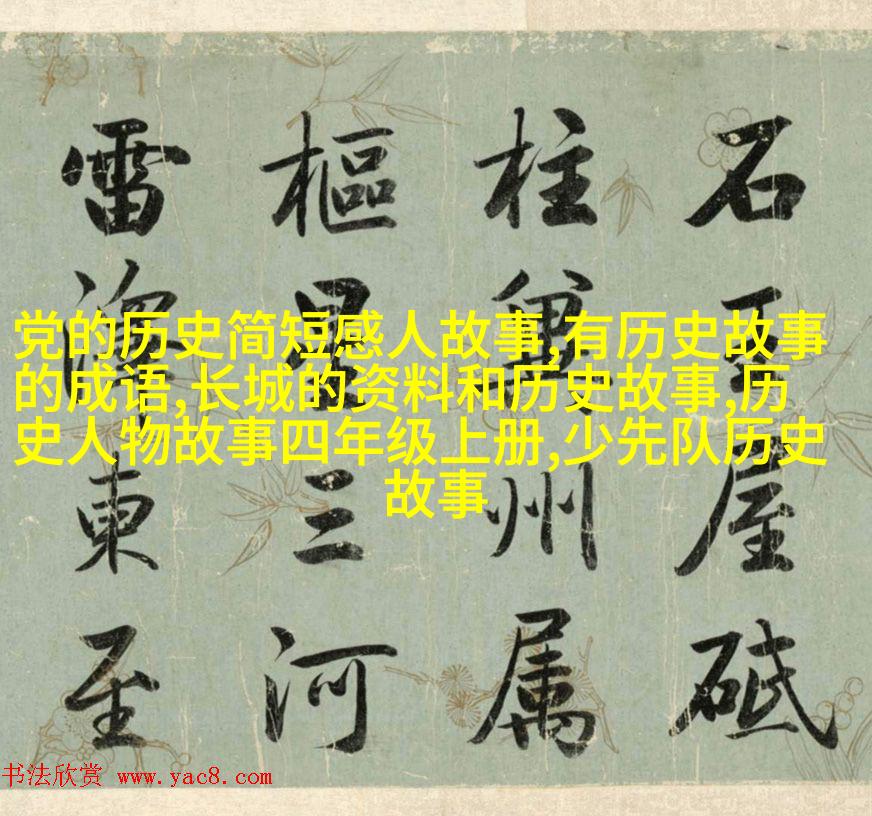 石王屋砥
柱冀州属
樞三河
雷東至
党的历史简短感人故事,有历史故事
的成语,长城的资料和历史故事,历
史人物故事四年级上册,少先队历史
故事
书法欣赏 www.yac8.com